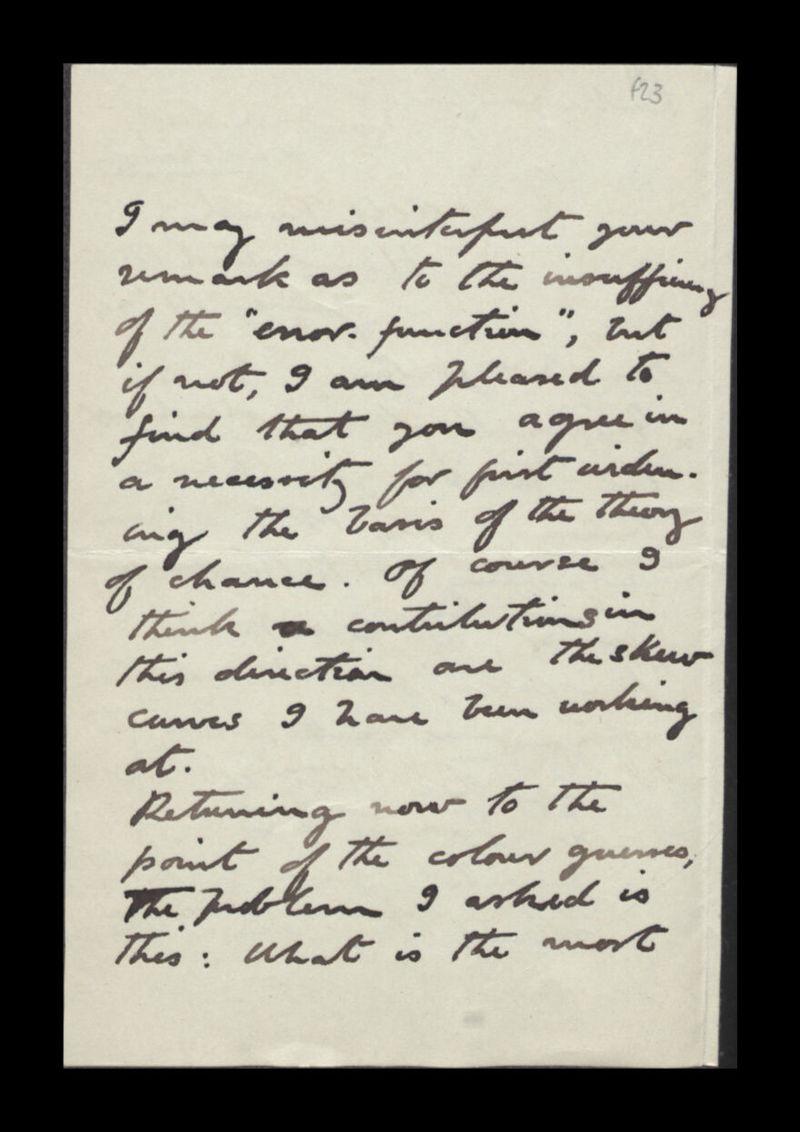 f23
I may misinterpret your
remark as to the insufficiency
of the "error-function", but
if not, I am pleased to
find that you agree in
a necessity for first widen-
ing the basis of the theory
of chance. Of course I
think contributions in
this direction are the skew
curves I have been working
at.
Returning now to the
point of the colour guesses,
the problem I asked is
this: What is the most